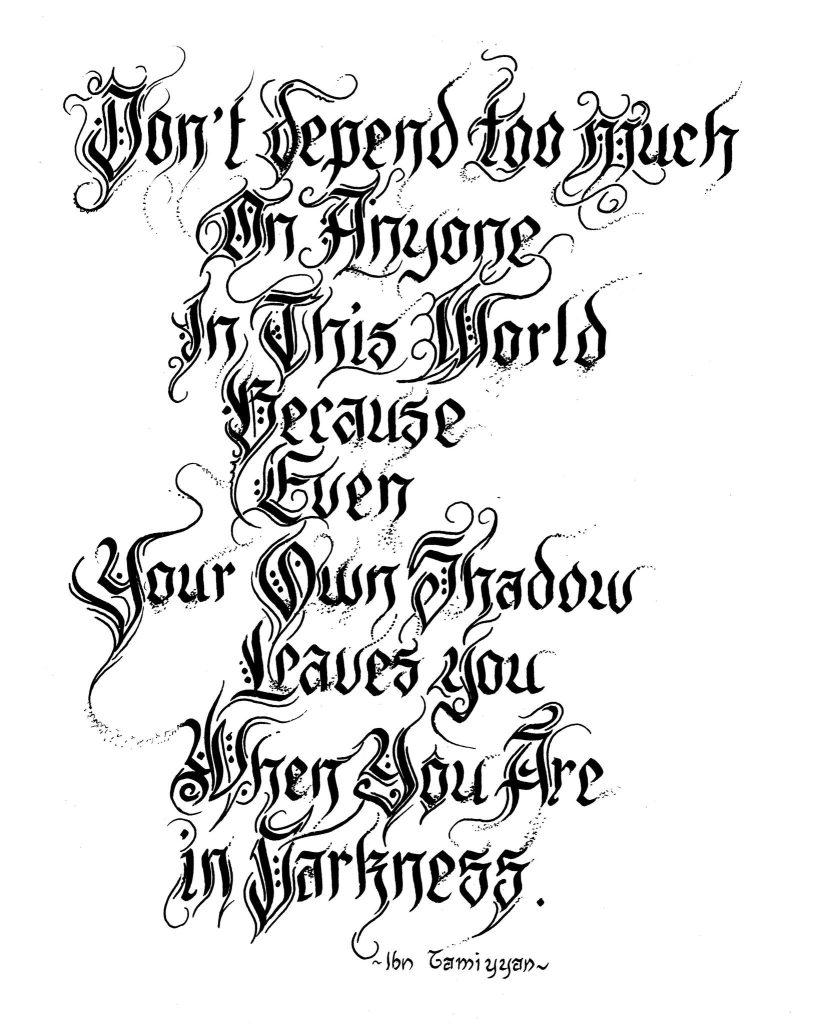 Don't depend too much
On Anyone
In This World
Because
Even
Your Own Shadow
Leaves you
When You Are
in Darkness.
~Ibn Tamiyyan~